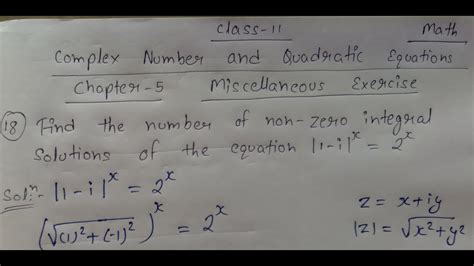 Class-11 Math
Complex Number and Quadratic Equations
Chapter-5 Miscellaneous Exercise
18 Find the number of non-zero integral
solutions of the equation |1-i|^x = 2^x
Sol:ⁿ- |1-i|^x = 2^x z = x+iy
(√(1)²+(-1)²)^x = 2^x |z| = √x²+y²